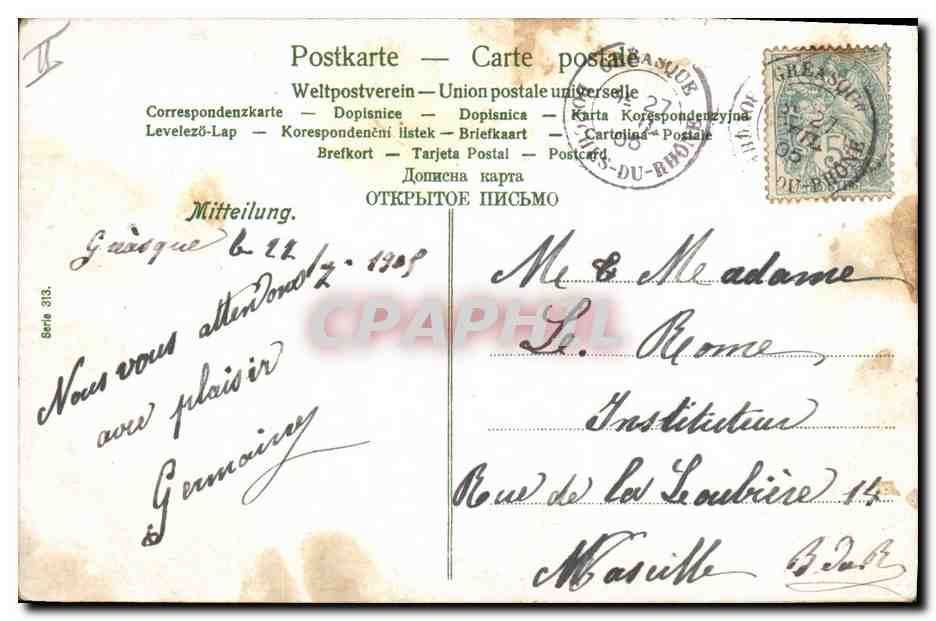 II
Postkarte — Carte postale
Weltpostverein — Union postale universelle
Correspondenzkarte — Dopisnice — Dopisnica — Karta Korespondenzyjna
Levelező-Lap — Korespondenční listek — Briefkaart — Cartolina Postale
Brefkort — Tarjeta Postal — Postcard
Дописна карта
ОТКРЫТОЕ ПИСЬМО
GRÉASQUE
27
05
BOUCHES-DU-RHÔNE
GRÉASQUE
05
DU-RHÔNE
5
Mitteilung.
Gréasque le 22
7 - 1905
Nous vous attendons
avec plaisir
Germaine
Serie 313.
CPAPHIL
M & Madame
Le. Rome
Instituteur
Rue de la Loubière 14
Marseille B du R